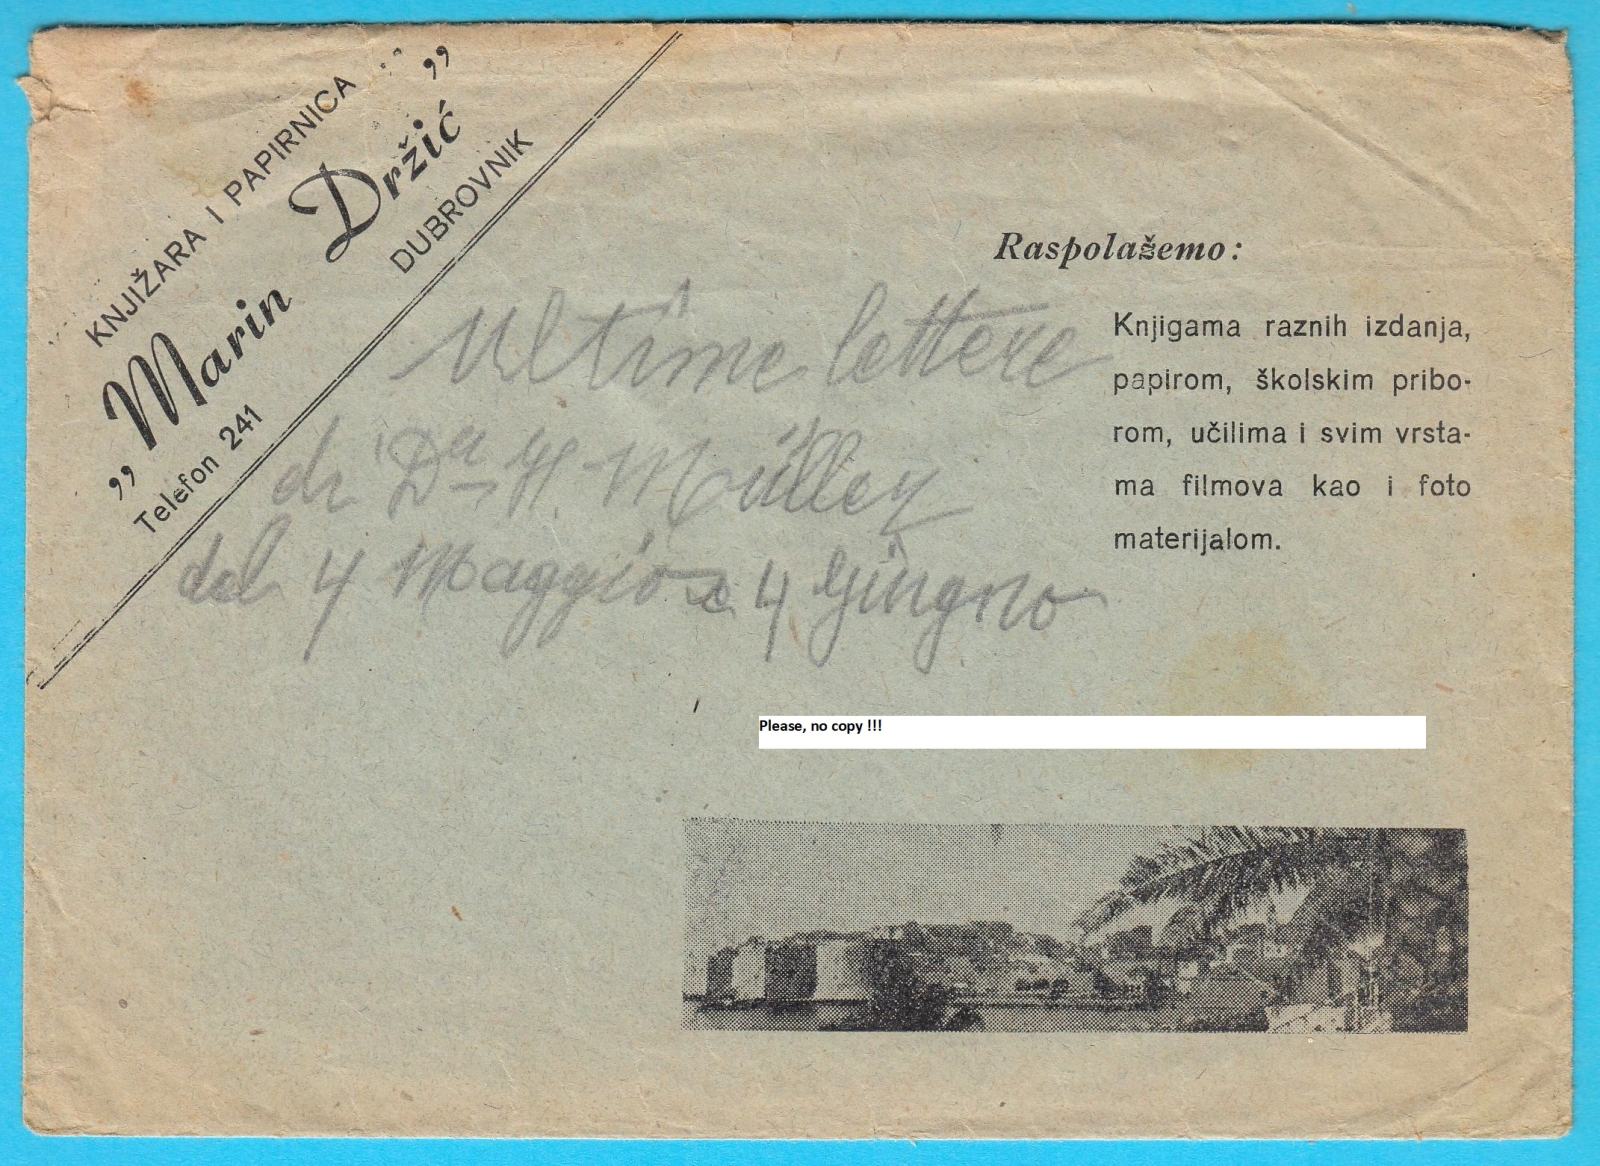 KNJIŽARA I PAPIRNICA
„Marin Držić”
DUBROVNIK
Telefon 241
Raspolažemo:
Knjigama raznih izdanja,
papirom, školskim pribo-
rom, učilima i svim vrsta-
ma filmova kao i foto
materijalom.
Ultime lettere
di H. Müller
del 4 Maggio e 4 Giugno
Please, no copy !!!